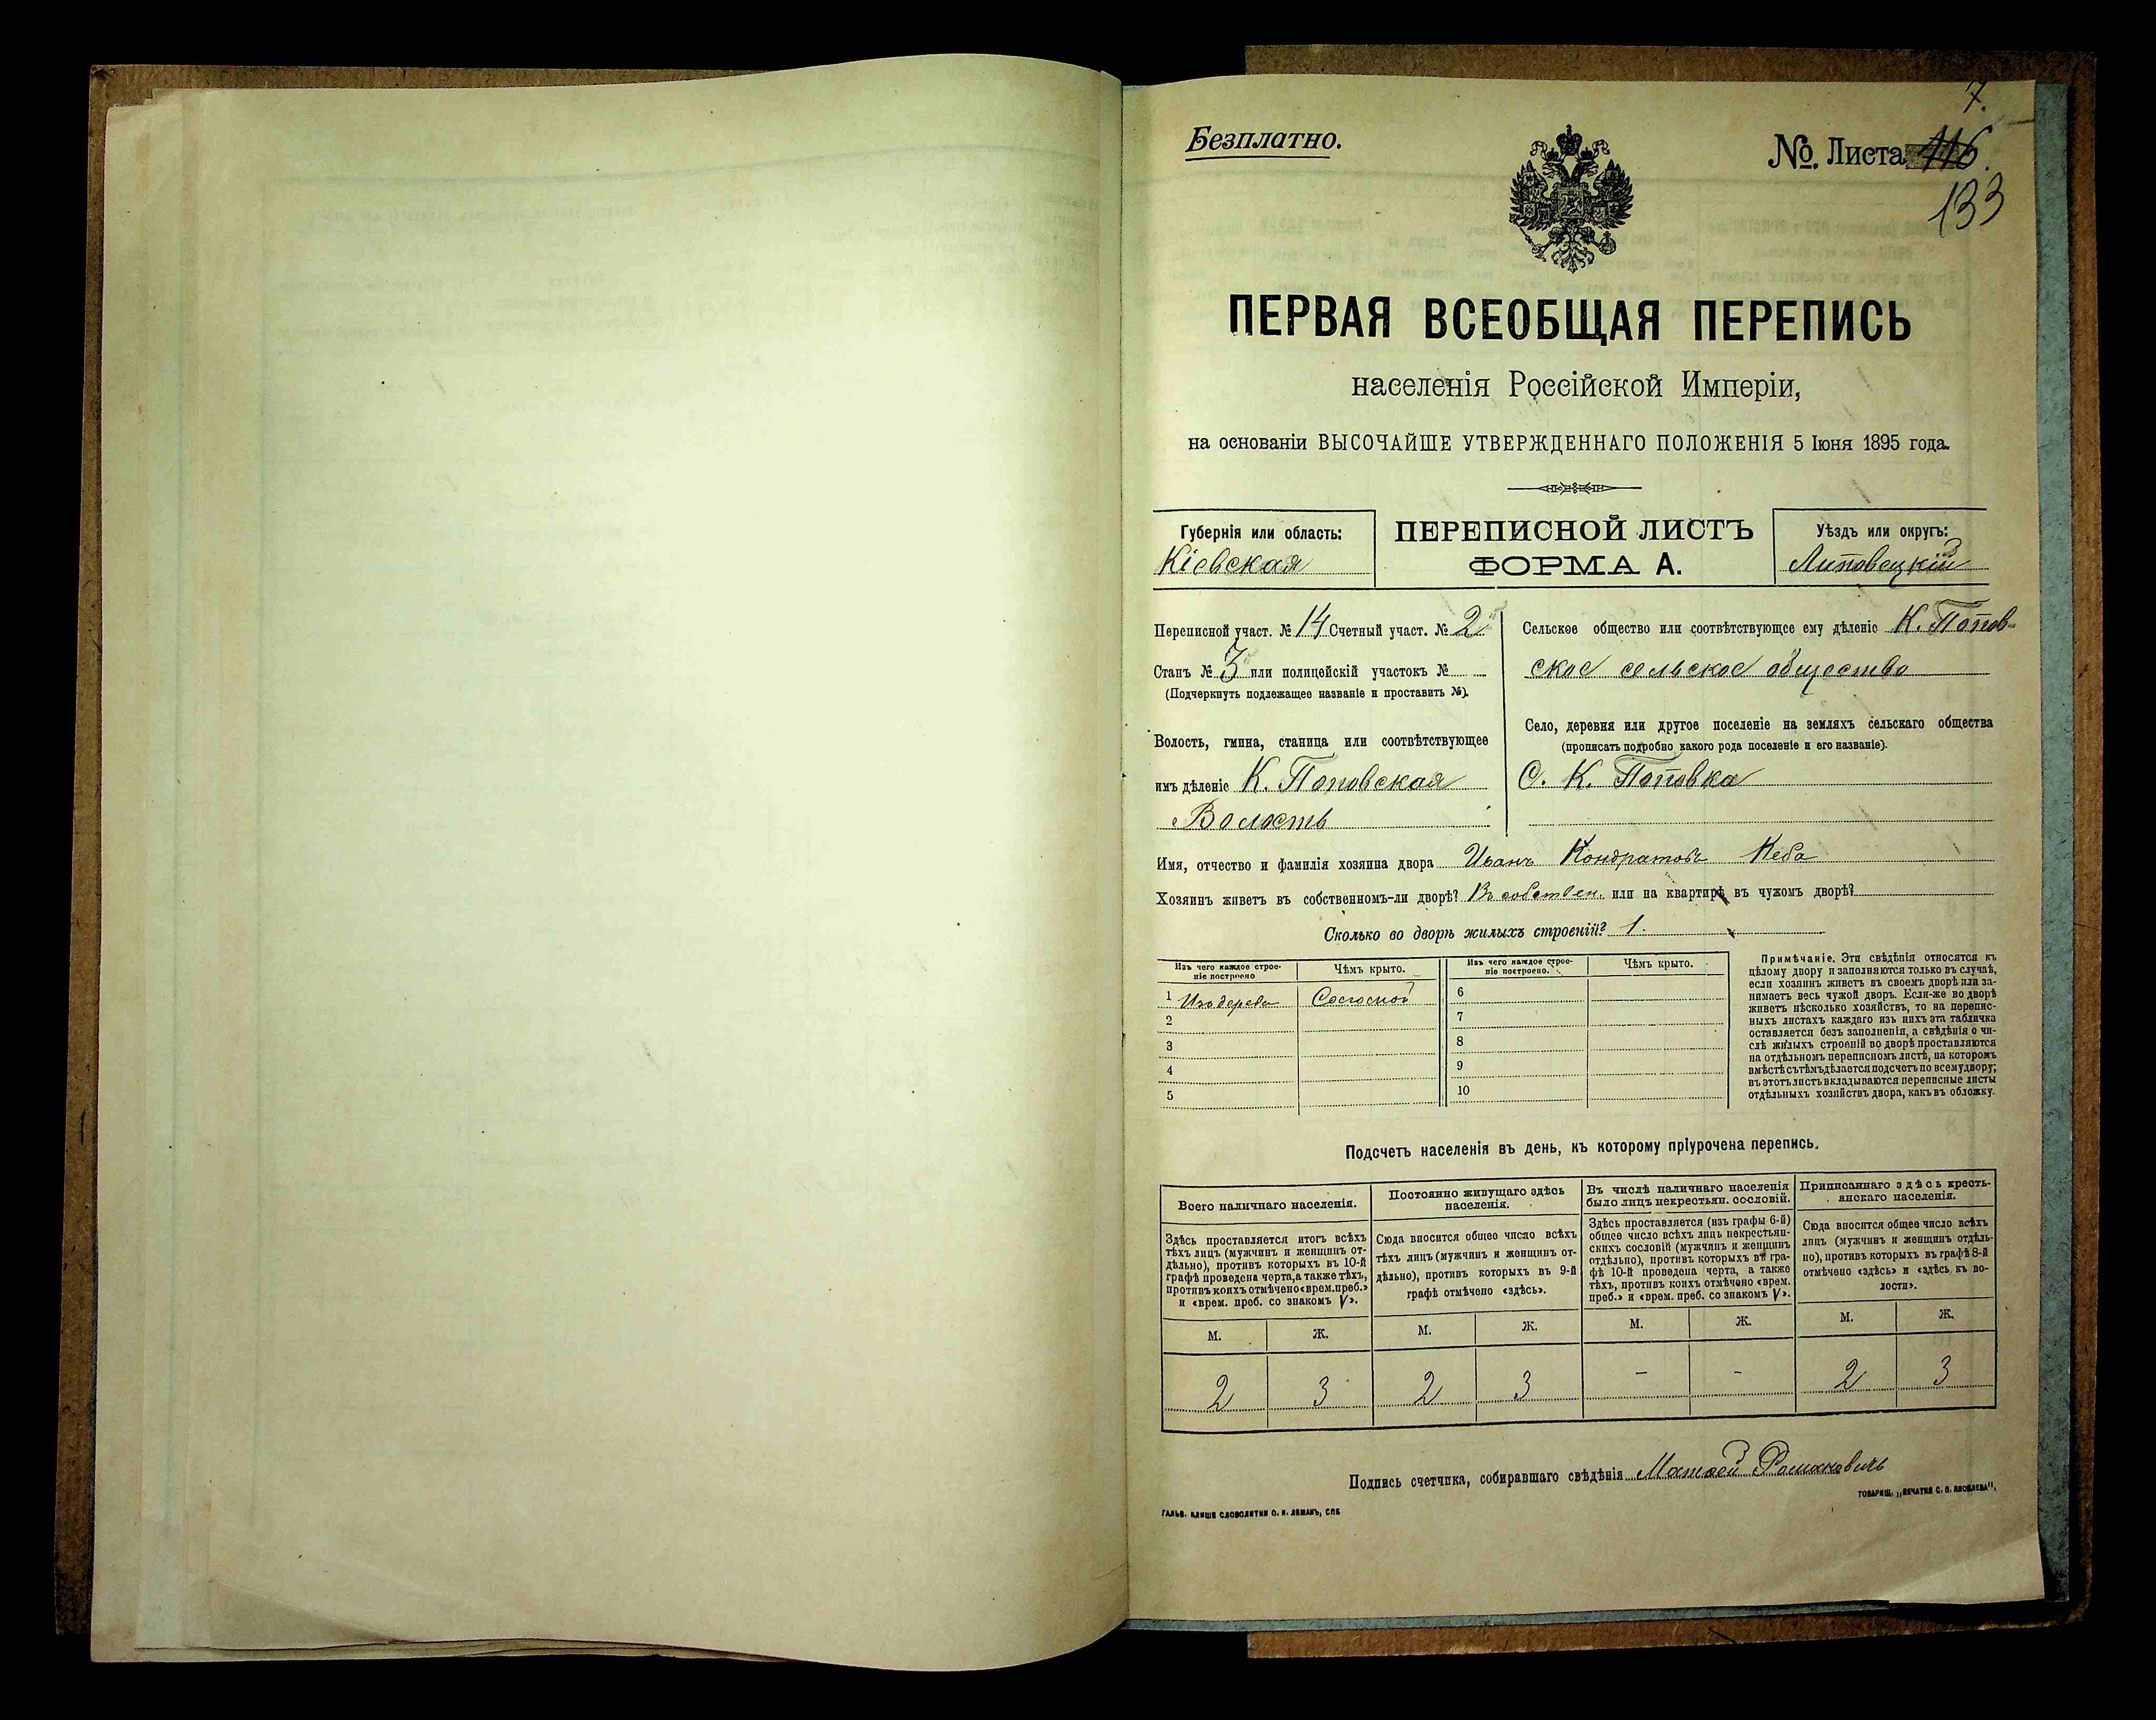 7.
Безплатно.
№. Листа 116.
133
ПЕРВАЯ ВСЕОБЩАЯ ПЕРЕПИСЬ
населенія Россійской Имперіи,
на основаніи ВЫСОЧАЙШЕ УТВЕРЖДЕННАГО ПОЛОЖЕНІЯ 5 Іюня 1895 года.
Губернія или область:
Кіевская
ПЕРЕПИСНОЙ ЛИСТЪ
ФОРМА А.
Уѣздъ или округъ:
Липовецкій
Переписной участ. № 14 Счетный участ. № 2
Станъ № 3 или полицейскій участокъ №
(Подчеркнуть подлежащее названіе и проставить №).
Волость, гмина, станица или соотвѣтствующее
имъ дѣленіе К. Поповская
Волость
Сельское общество или соотвѣтствующее ему дѣленіе К. Попов-
ское сельское общество
Село, деревня или другое поселеніе на земляхъ сельскаго общества
(прописать подробно какого рода поселеніе и его названіе).
С. К. Поповка
Имя, отчество и фамилія хозяина двора Иванъ Кондратовъ Кеба
Хозяинъ живетъ въ собственномъ-ли дворѣ? Въ собствен. или на квартирѣ въ чужомъ дворѣ?
Сколько во дворѣ жилыхъ строеній? 1.
Изъ чего каждое строе-
ніе построено
Чѣмъ крыто.
Изъ чего каждое строе-
ніе построено.
Чѣмъ крыто.
1 Изъ дерева
6
2
7
3
8
4
9
5
10
Примѣчаніе. Эти свѣдѣнія относятся къ
цѣлому двору и заполняются только въ случаѣ,
если хозяинъ живетъ въ своемъ дворѣ или за-
нимаетъ весь чужой дворъ. Если-же во дворѣ
живетъ нѣсколько хозяйствъ, то на перепис-
ныхъ листахъ каждаго изъ нихъ эта табличка
оставляется безъ заполненія, а свѣдѣнія о чи-
слѣ жилыхъ строеній во дворѣ проставляются
на отдѣльномъ переписномъ листѣ, на которомъ
вмѣстѣ съ тѣмъ дѣлается подсчетъ по всему двору;
въ этотъ листъ вкладываются переписные листы
отдѣльныхъ хозяйствъ двора, какъ въ обложку.
Подсчетъ населенія въ день, къ которому пріурочена перепись.
Всего наличнаго населенія.
Здѣсь проставляется итогъ всѣхъ
тѣхъ лицъ (мужчинъ и женщинъ от-
дѣльно), противъ которыхъ въ 10-й
графѣ проведена черта, а также тѣхъ,
противъ коихъ отмѣчено «врем. преб.»
и «врем. преб. со знакомъ V».
Постоянно живущаго здѣсь
населенія.
Сюда вносится общее число всѣхъ
тѣхъ лицъ (мужчинъ и женщинъ от-
дѣльно), противъ которыхъ въ 9-й
графѣ отмѣчено «здѣсь».
Въ числѣ наличнаго населенія
было лицъ некрестьян. сословій.
Здѣсь проставляется (изъ графы 6-й)
общее число всѣхъ лицъ некрестьян-
скихъ сословій (мужчинъ и женщинъ
отдѣльно), противъ которыхъ въ гра-
фѣ 10-й проведена черта, а также
тѣхъ, противъ коихъ отмѣчено «врем.
преб.» и «врем. преб. со знакомъ V».
Приписаннаго здѣсь кресть-
янскаго населенія.
Сюда вносится общее число всѣхъ
лицъ (мужчинъ и женщинъ отдѣль-
но), противъ которыхъ въ графѣ 8-й
отмѣчено «здѣсь» и «здѣсь, къ во-
лости».
М. Ж. М. Ж. М. Ж. М. Ж.
2 3 2 3 - - 2 3
Подпись счетчика, собиравшаго свѣдѣнія Матвей Романовичъ
ГАЛЬВ. КЛИШЕ СЛОВОЛИТНИ О. И. ЛЕМАНЪ, СПБ
ТОВАРИЩ. „ПЕЧАТНЯ С. П. ЯКОВЛЕВА“.